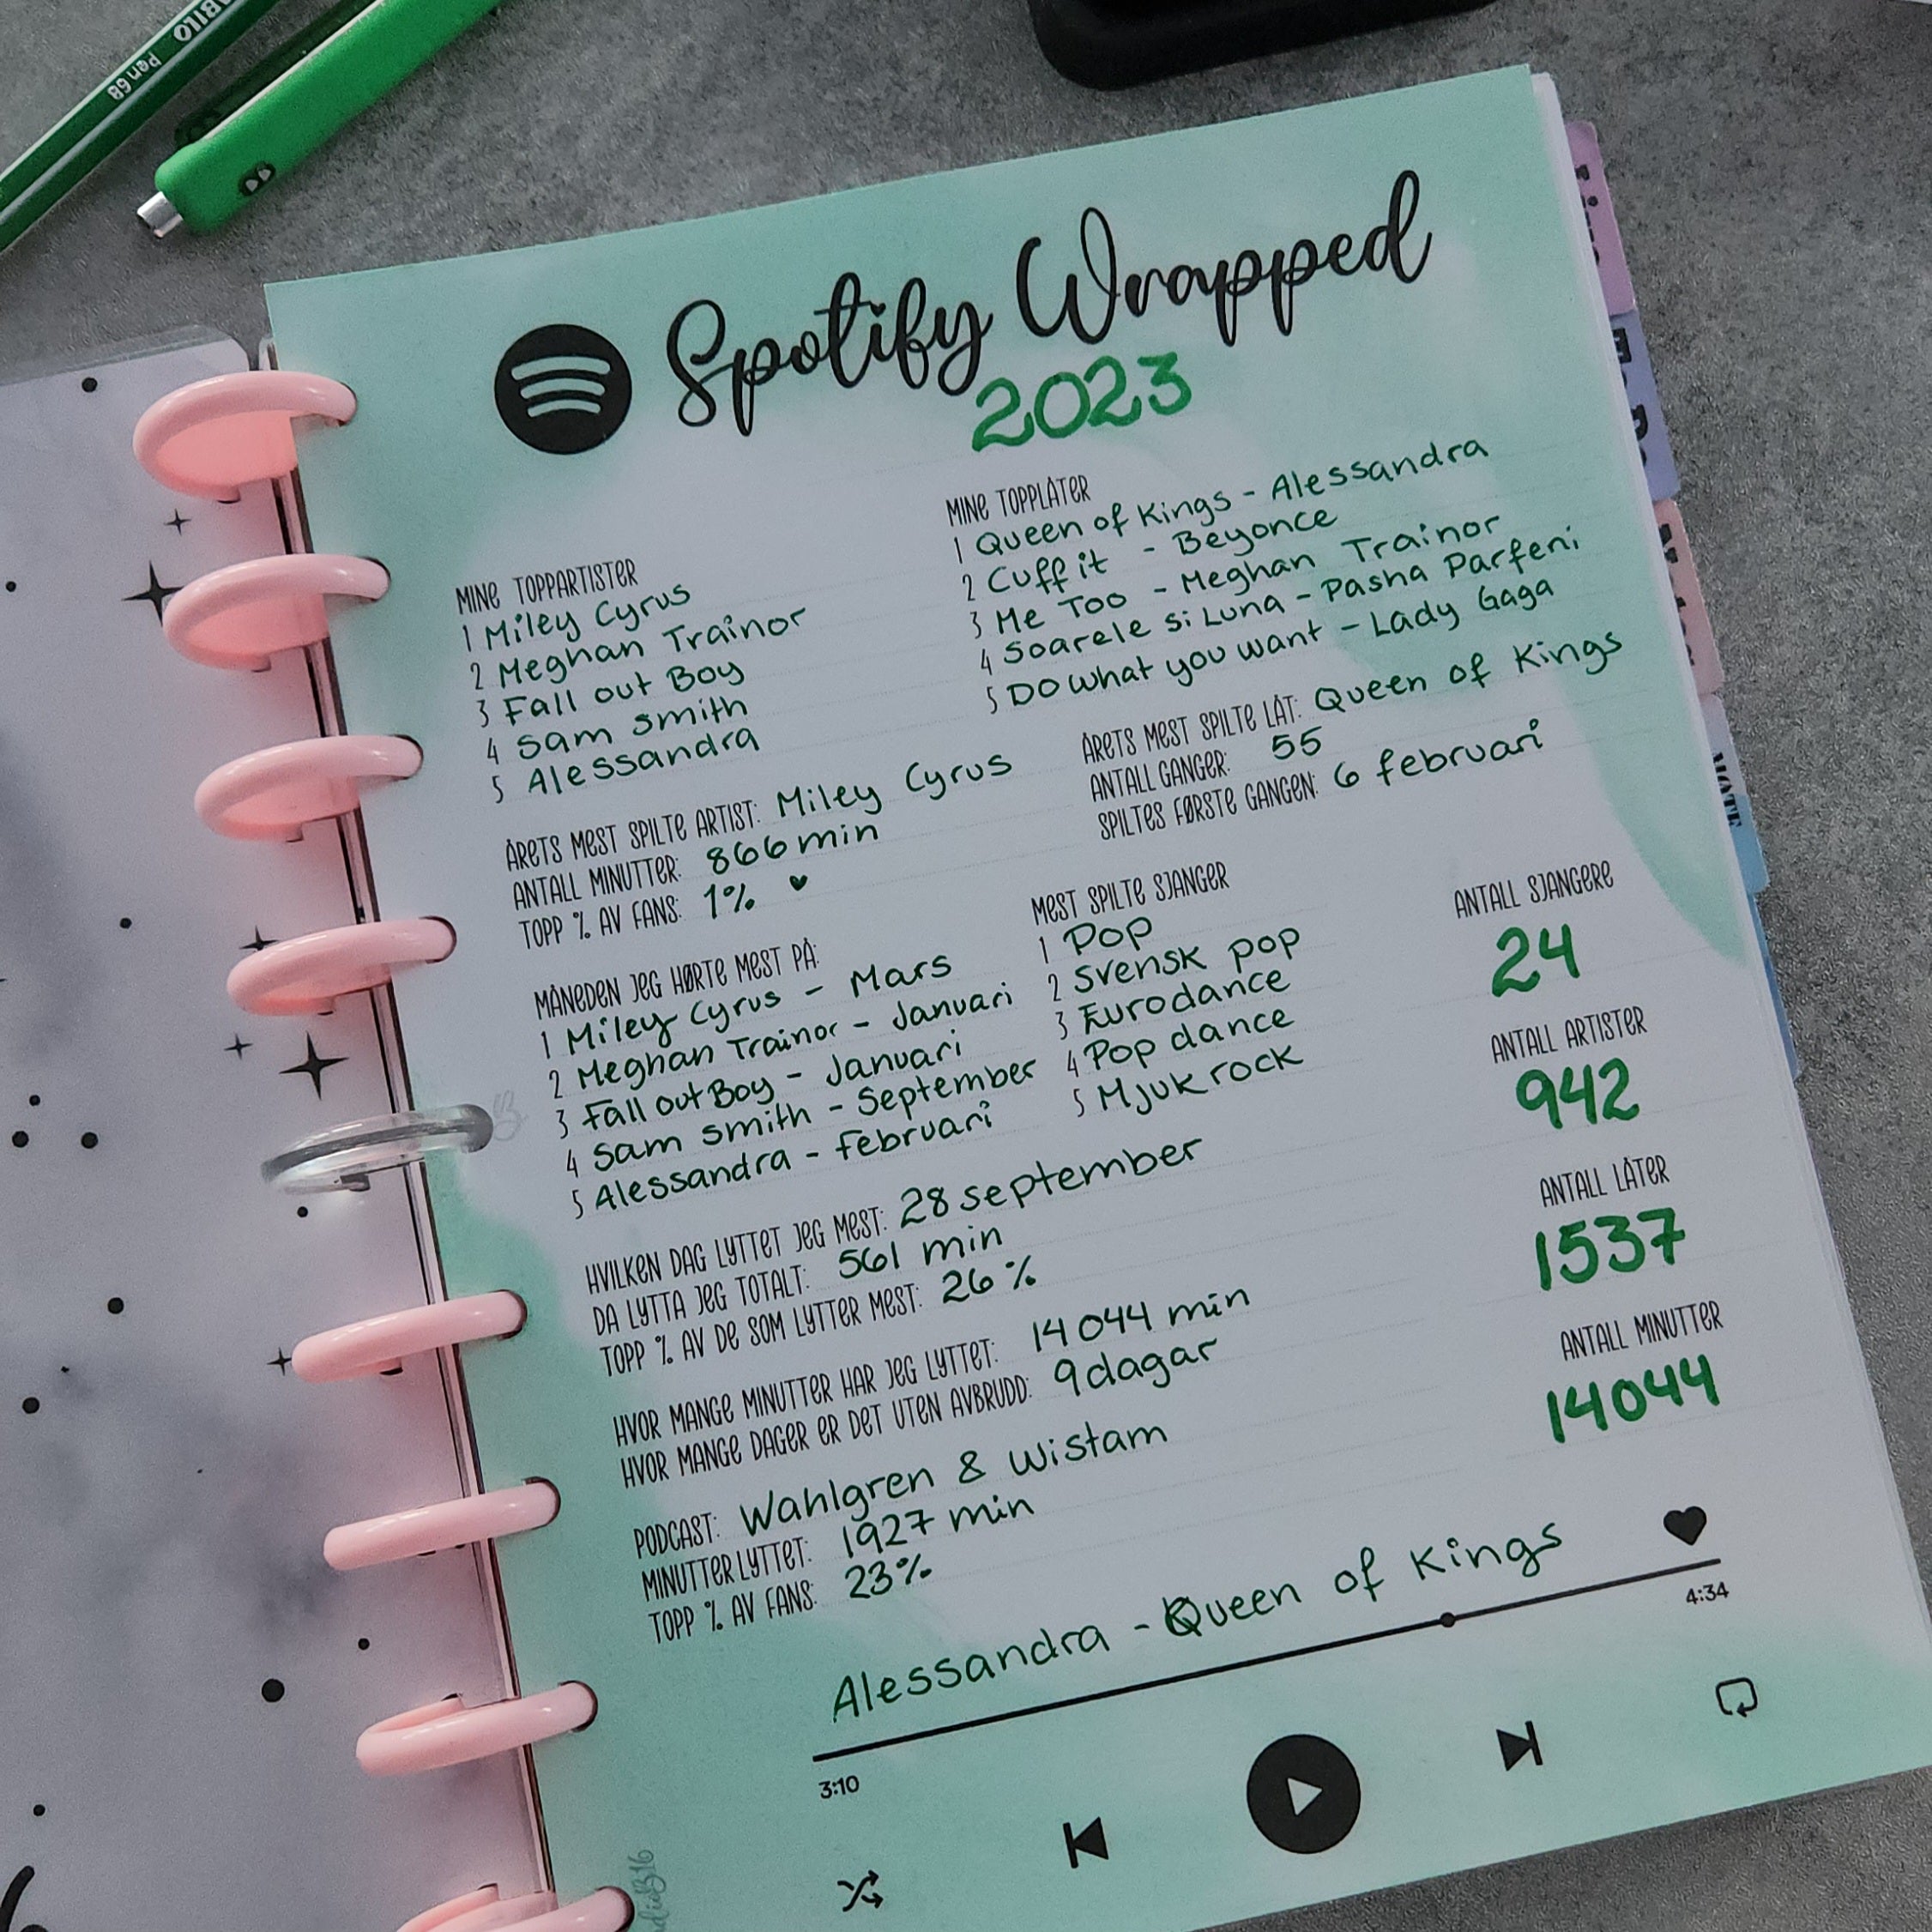 STABILO
Pen 68
Spotify Wrapped
2023
MINE TOPPARTISTER
1 Miley Cyrus
2 Meghan Trainor
3 Fall out Boy
4 Sam Smith
5 Alessandra
MINE TOPPLÅTER
1 Queen of Kings - Alessandra
2 Cuff it - Beyonce
3 Me Too - Meghan Trainor
4 Soarele si Luna - Pasha Parfeni
5 Do what you want - Lady Gaga
ÅRETS MEST SPILTE ARTIST: Miley Cyrus
ANTALL MINUTTER: 866 min
TOPP % AV FANS: 1% ♥
ÅRETS MEST SPILTE LÅT: Queen of Kings
ANTALL GANGER: 55
SPILTES FØRSTE GANGEN: 6 februari
MÅNEDEN JEG HØRTE MEST PÅ:
1 Miley Cyrus - Mars
2 Meghan Trainor - Januari
3 Fall out Boy - Januari
4 Sam Smith - September
5 Alessandra - Februari
MEST SPILTE SJANGER
1 Pop
2 Svensk pop
3 Eurodance
4 Pop dance
5 Mjuk rock
ANTALL SJANGERE
24
ANTALL ARTISTER
942
ANTALL LÅTER
1537
ANTALL MINUTTER
14044
HVILKEN DAG LYTTET JEG MEST: 28 september
DA LYTTA JEG TOTALT: 561 min
TOPP % AV DE SOM LYTTER MEST: 26%
HVOR MANGE MINUTTER HAR JEG LYTTET: 14044 min
HVOR MANGE DAGER ER DET UTEN AVBRUDD: 9 dagar
PODCAST: Wahlgren & Wistam
MINUTTER LYTTET: 1927 min
TOPP % AV FANS: 23%
Alessandra - Queen of Kings
3:10
4:34
NOTE